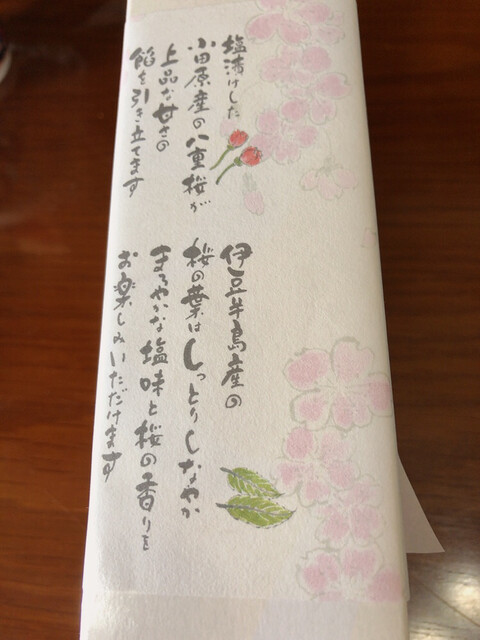 塩漬けした
小田原産の八重桜が
上品な甘さの
餡を引き立てます
伊豆半島産の
桜の葉はしっとりしなやか
まろやかな塩味と桜の香りを
お楽しみいただけます